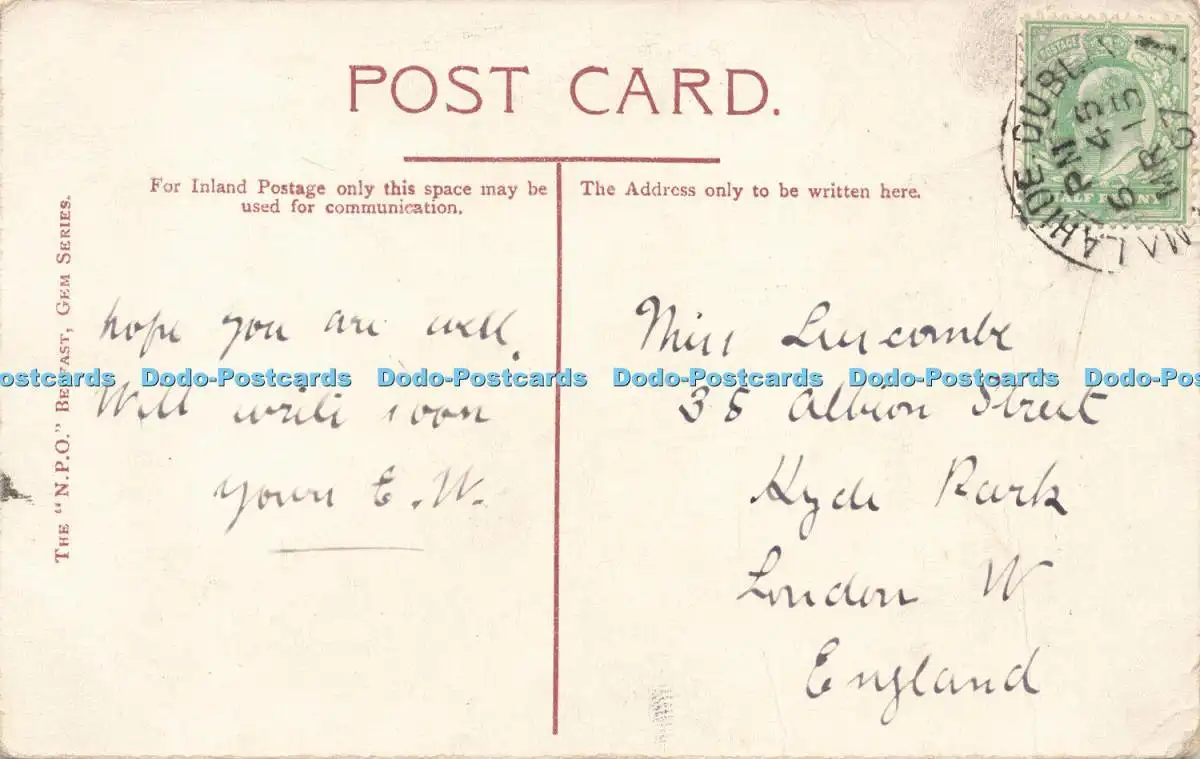 POST CARD.
For Inland Postage only this space may be
used for communication.
The Address only to be written here.
THE "N.P.O." BELFAST, GEM SERIES.
hope you are well.
Will write soon
yours E.W.
Miss Luscombe
38 Albion Street
Hyde Park
London W
England
POSTAGE
HALF PENNY
MALAHIDE DUBLIN
PM
MR 15
07
ostcards Dodo-Postcards Dodo-Postcards Dodo-Postcards Dodo-Postcards Dodo-Pos